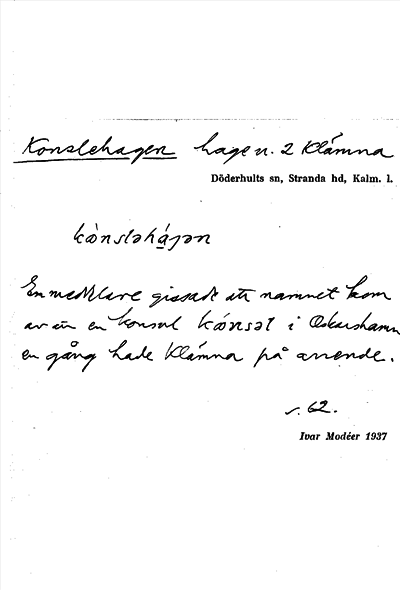 Konslehagen hage n. 2 Klämna
Döderhults sn, Stranda hd, Kalm. l.
En meddelare gissade att namnet kom
av en konsul i Oskarshamn
en gång hade Klämna på arrende.
s. 62.
Ivar Modéer 1937